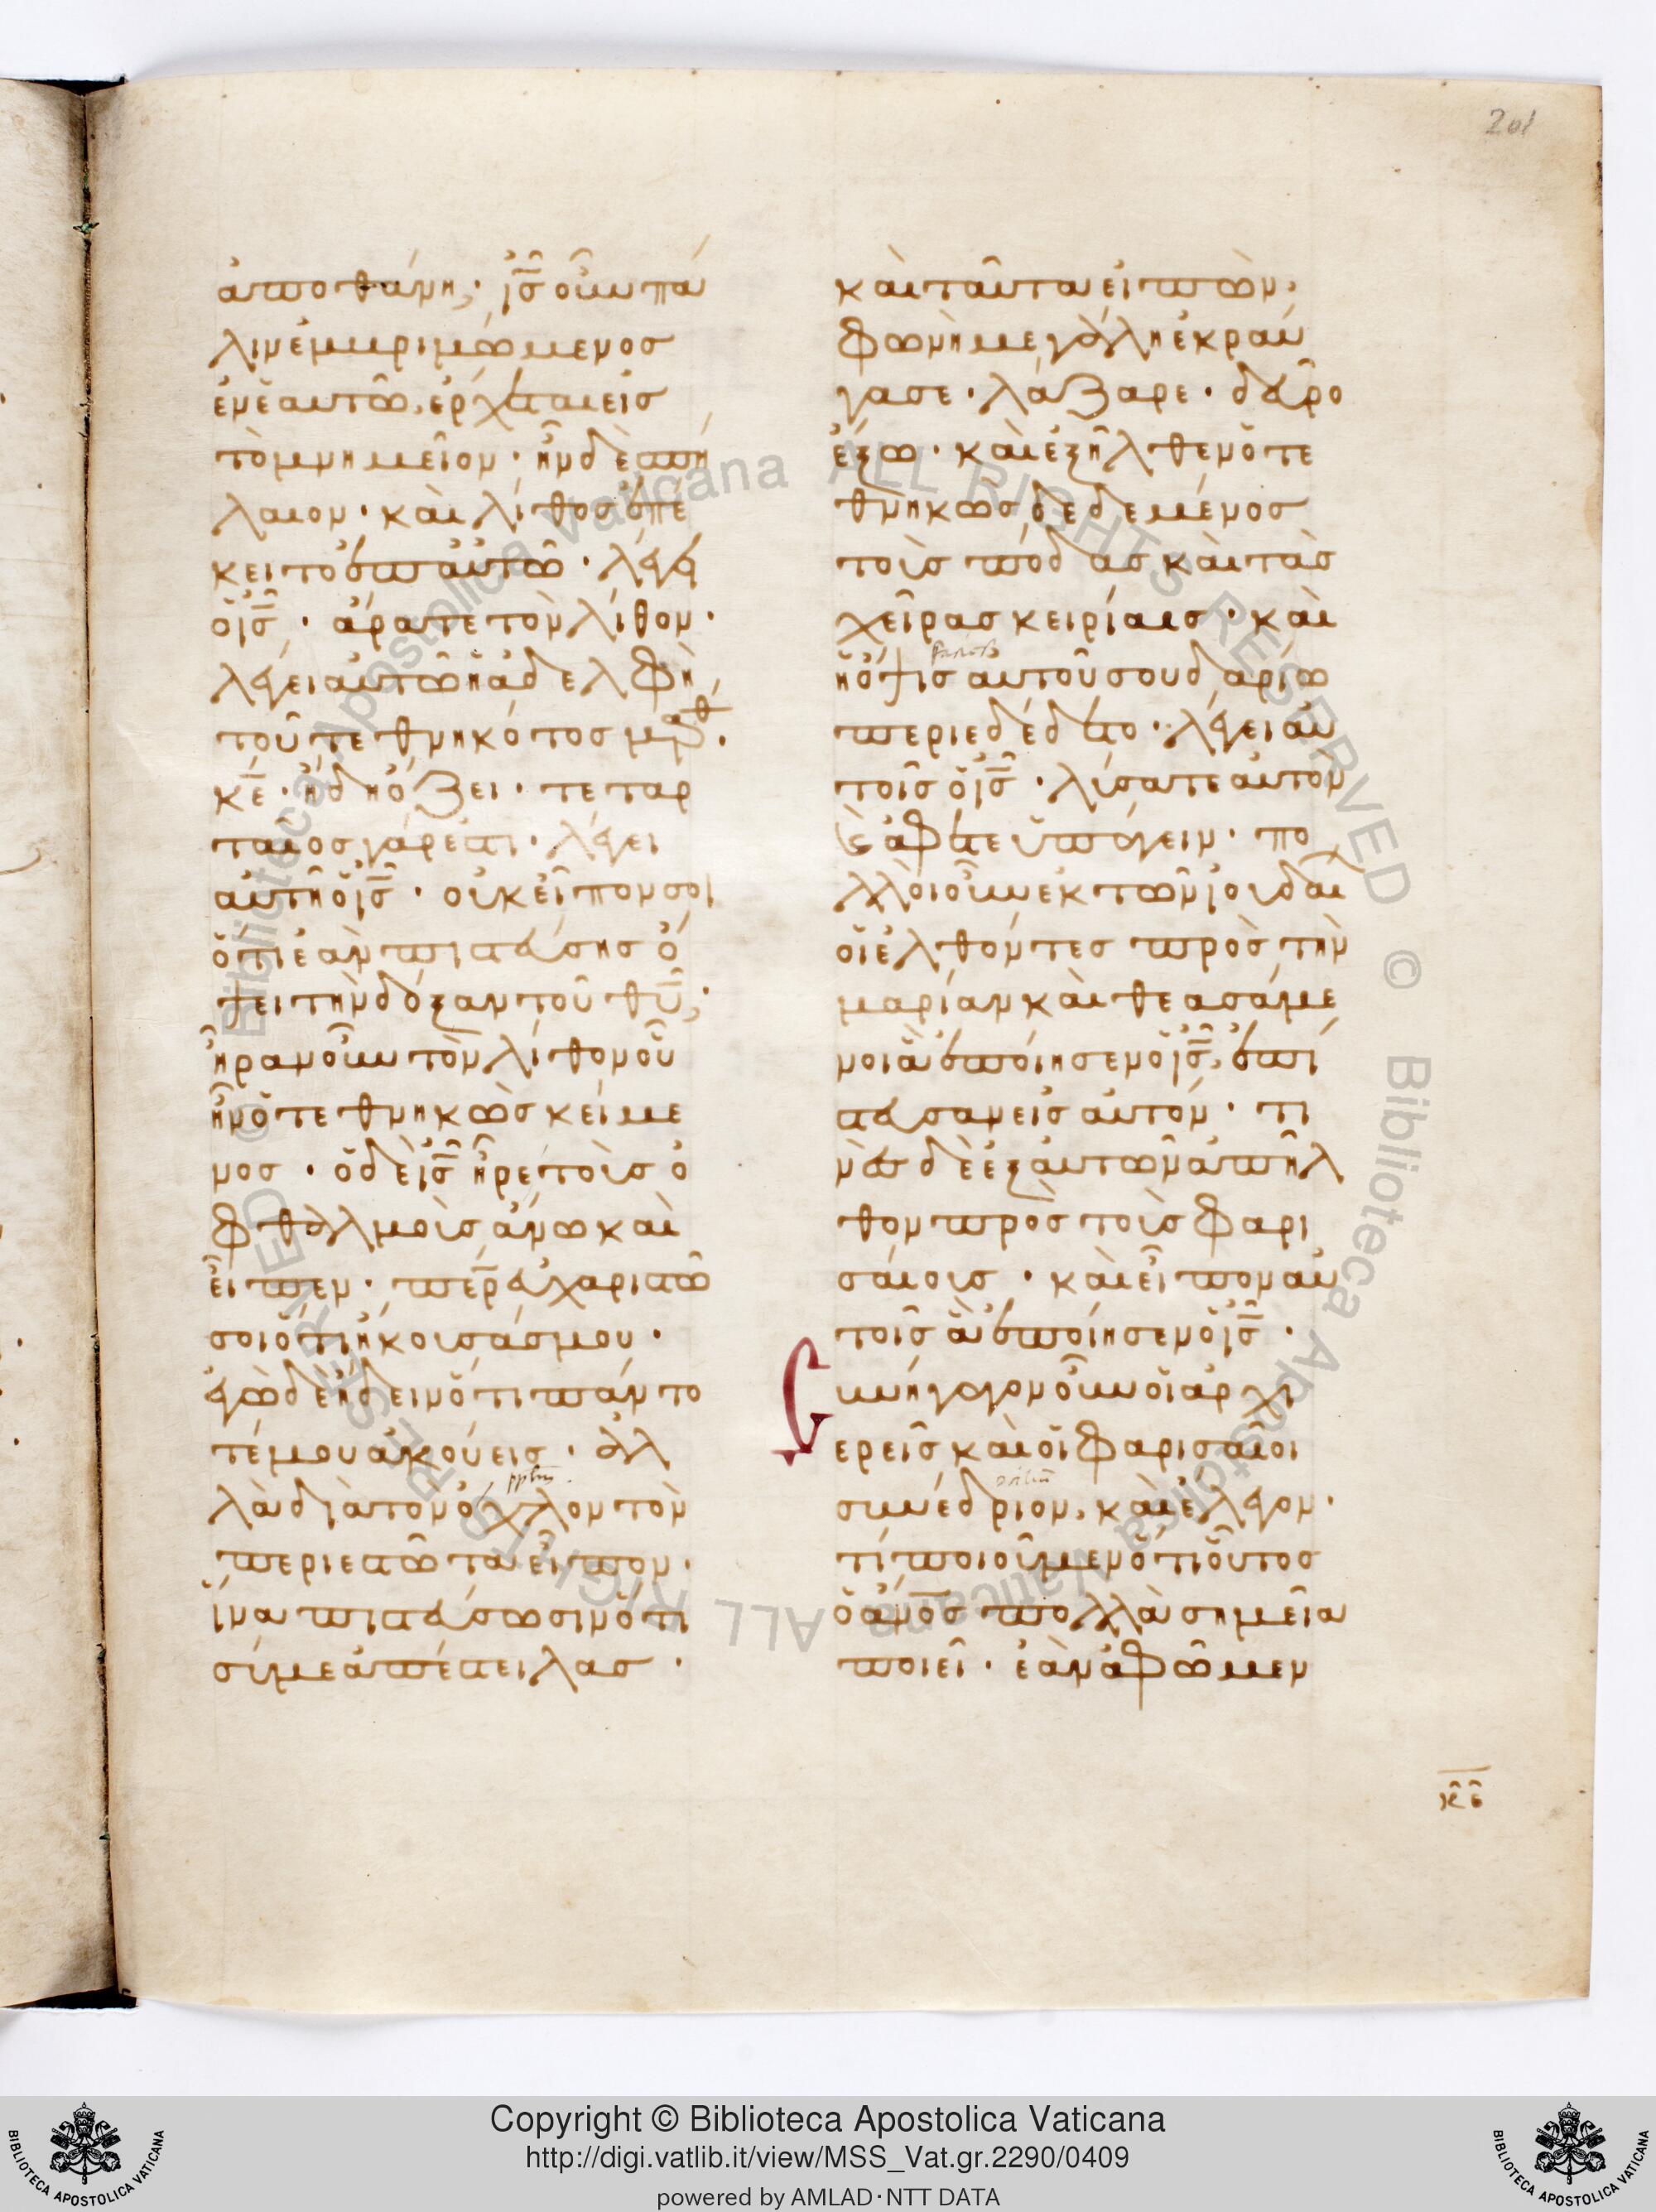 201
ἀποθάνη; ἰ̅ς̅ οὖν πά
λιν ἐμβριμώμενος
ἐν ἑαυτῶ, ἔρχεται εἰς
τὸ μνημεῖον · ἦν δὲ σπή
λαιον · καὶ λίθος ἐπέ
κειτο ἐπ αὐτῶ · λέγει
ὁ ἰ̅ς̅ · ἄρατε τὸν λίθον ·
λέγει αὐτῶ ἡ ἀδελφὴ
τοῦ τεθνηκότος μάρθα ·
κ̅ε̅ · ἤδη ὄζει · τεταρ
ταῖος γάρ ἐστι · λέγει
αὐτῆ ὁ ἰ̅ς̅ · οὐκ εἶπόν σοι
ὅτι ἐὰν πιστεύσης ὄ
ψει τὴν δόξαν τοῦ θ̅υ̅;
ἦραν οὖν τὸν λίθον οὗ
ἦν ὁ τεθνηκὼς κείμε
νος · ὁ δὲ ἰ̅ς̅ ἦρε τοὺς ὀ
φθαλμοὺς ἄνω καὶ
εἶπεν · π̅ε̅ρ̅ εὐχαριστῶ
σοι ὅτι ἤκουσάς μου ·
ἐγὼ δὲ ἤδειν ὅτι πάντο
τέ μου ἀκούεις · ἀλ
λὰ διὰ τὸν ὄχλον τὸν
περιεστῶτα εἶπον ·
ἵνα πιστεύσωσιν ὅτι
σύ με ἀπέστειλας ·
καὶ ταῦτα εἰπὼν,
φωνῆ μεγάλη ἐκραύ
γασε · λάζαρε · δεῦρο
ἔξω · καὶ ἐξῆλθεν ὁ τε
θνηκὼς δεδεμένος
τοὺς πόδας καὶ τὰς
χεῖρας κειρίαις · καὶ
ἡ ὄψις αὐτοῦ σουδαρίω
περιεδέδετο · λέγει αὐ
τοῖς ὁ ἰ̅ς̅ · λύσατε αὐτὸν
καὶ ἄφετε ὑπάγειν · πο
λλοὶ οὖν ἐκ τῶν ἰουδαί
οἱ ἐλθόντες πρὸς τὴν
μαρίαν καὶ θεασάμε
νοι ἃ ἐποίησεν ὁ ἰ̅ς̅, ἐπί
στευσαν εἰς αὐτόν · τι
νὲς δὲ ἐξ αὐτῶν ἀπῆλ
θον πρὸς τοὺς φαρι
σαίους · καὶ εἶπον αὐ
τοῖς ἃ ἐποίησεν ὁ ἰ̅ς̅ ·
Συνήγαγον οὖν οἱ ἀρχι
ερεῖς καὶ οἱ φαρισαῖοι
συνέδριον, καὶ ἔλεγον ·
τί ποιοῦμεν ὅτι οὗτος
ὁ α̅ν̅ο̅ς̅ πολλὰ σημεῖα
ποιεῖ · ἐὰν ἀφῶμεν
κϛ
Biblioteca Apostolica Vaticana ALL RIGHTS RESERVED ©
Copyright © Biblioteca Apostolica Vaticana
http://digi.vatlib.it/view/MSS_Vat.gr.2290/0409
powered by AMLAD·NTT DATA
BIBLIOTECA APOSTOLICA VATICANA
BIBLIOTECA APOSTOLICA VATICANA